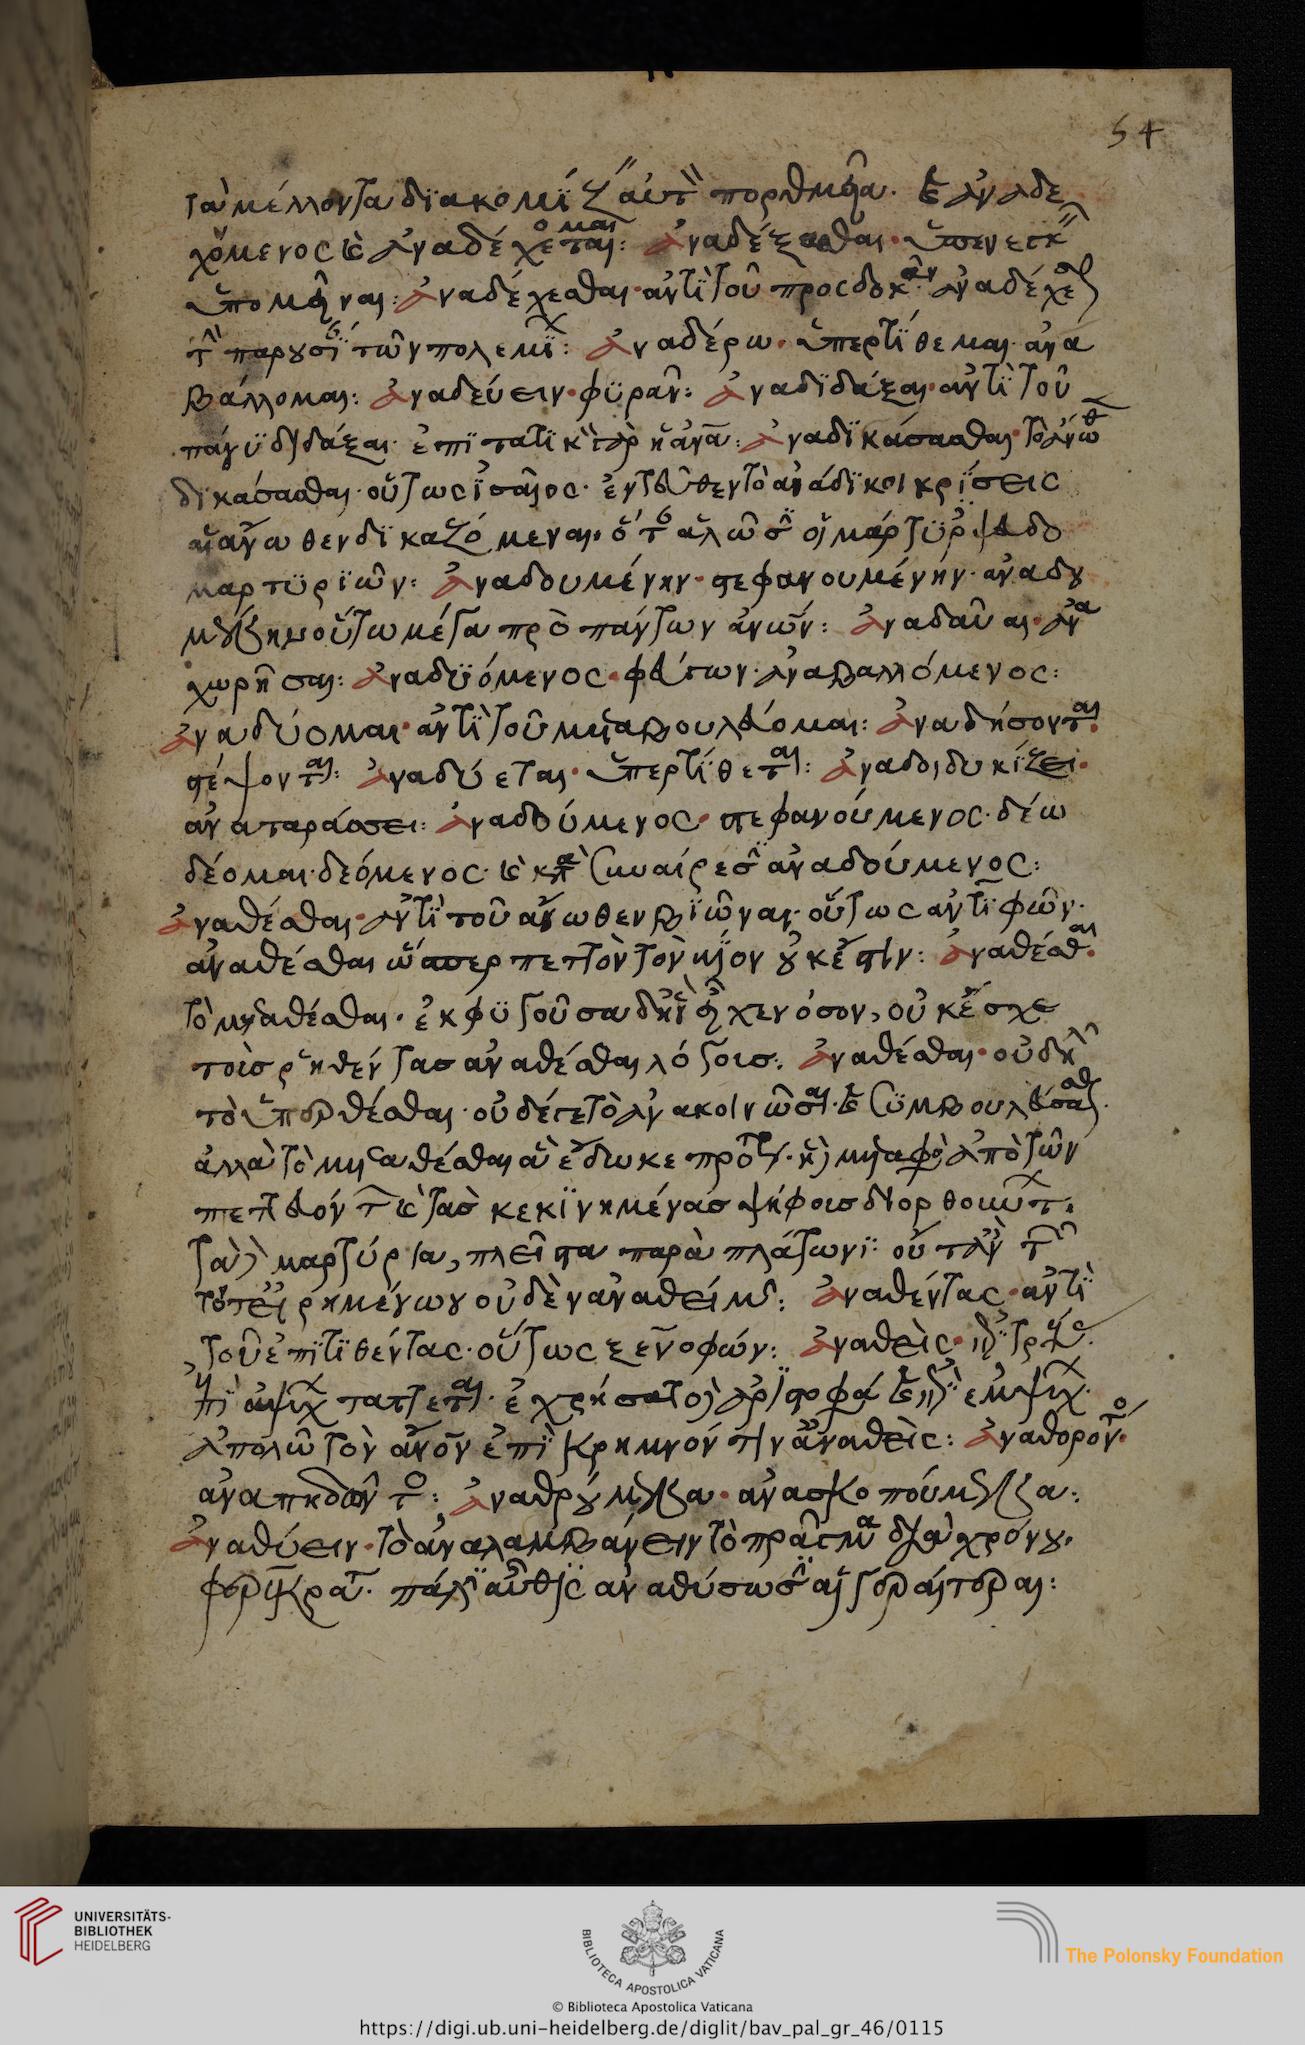 54
τὰ μέλλοντα διακομίζ αὐτ πορθμεῖα. καὶ ἀναδε
χόμενος καὶ ἀναδέχεται ομαι: ἀναδέξασθαι· ὑπενεγκ
ὑπομεῖναι: ἀναδέχεσθαι· ἀντὶ τοῦ προσδοκᾶν· ἀναδέχεσ
τ παρουσι τῶν πολεμι: ἀναδέρω· ὑπερτίθεμαι· ἀνα
βάλλομαι: ἀναδεύειν· φυρᾶν: ἀναδιδάξαι· ἀντὶ τοῦ
πάνυ διδάξαι· ἐπιτατικὴ γὰρ ἡ ἀνα: ἀναδικάσασθαι· τὸ ἄνωθ
δικάσασθαι· οὕτως ἰσαῖος· ἐντεῦθεν τὸ ἀνάδικοι κρίσεις
αἱ ἄνωθεν δικαζόμεναι· ὅτ ἁλῶσ οἱ μάρτυρ ψευδο
μαρτυριῶν: ἀναδουμένην· στεφανουμένην· ἀναδου
χωρῆσαι: ἀναδυόμενος· φεύγων· ἀναβαλλόμενος:
ἀναδύομαι· ἀντὶ τοῦ μεταβουλεύομαι: ἀναδήσονται·
στέψονται: ἀναδύεται· ὑπερτίθεται: ἀναδοιδυκίζει·
ἀναταράσσει: ἀναδούμενος· στεφανούμενος· δέω
δέομαι· δεόμενος· καὶ κατὰ συναίρεσ ἀναδούμενος:
ἀναθέσθαι· ἀντὶ τοῦ ἄνωθεν βιῶναι· οὕτως ἀντιφῶν·
ἀναθέσθαι ὥσπερ πεττὸν τὸν βίον οὐκ ἔστιν: ἀναθέσθαι·
τὸ μεταθέσθαι· ἐκφυγοῦσα δ ἣν εἶχεν όσον, οὐκ ἔσχε
τοὺς ῥηθέντας ἀναθέσθαι λόγους: ἀναθέσθαι· οὐ δηλ
τὸ ὑπερθέσθαι· οὐδέ γε τὸ ἀνακοινῶσαι καὶ συμβουλεύσασθ
ἀλλὰ τὸ μεταθέσθαι ἃ ἔδωκε πρότ· ἡ μεταφο ἀπὸ τῶν
πεττευόντ καὶ τὰς κεκινημένας ψήφους διορθουντ·
τὰ μαρτύρια, πλεῖστα παρὰ πλάτωνι· οὔτ ἂν τ
τότε εἰρημένων οὐδὲν ἀναθείμ: ἀναθέντας· ἀντὶ
τοῦ ἐπιτιθέντας· οὕτως ξενοφών: ἀναθεὶς·
ἐπὶ ἀψυχ τάττεται· ἐχρήσατο ἀριστοφα καὶ ἐπὶ ἐμψυχ·
ἀπολῶ τὸν ἄνον ἐπὶ κρημνόν τιν ἀναθεὶς: ἀναθορόντο·
ἀναπηδῶντο: ἀναθρ· ἀνασκοπούμ:
ἀναθύειν· τὸ ἀναλαμβάνειν τὸ πρᾶγμα διὰ χρόνου·
φερεκρατ· πάλιν αὖθις ἀναθύσωσ αἱ γεραίτεραι:
UNIVERSITÄTS-
BIBLIOTHEK
HEIDELBERG
BIBLIOTECA APOSTOLICA VATICANA
The Polonsky Foundation
© Biblioteca Apostolica Vaticana
https://digi.ub.uni-heidelberg.de/diglit/bav_pal_gr_46/0115